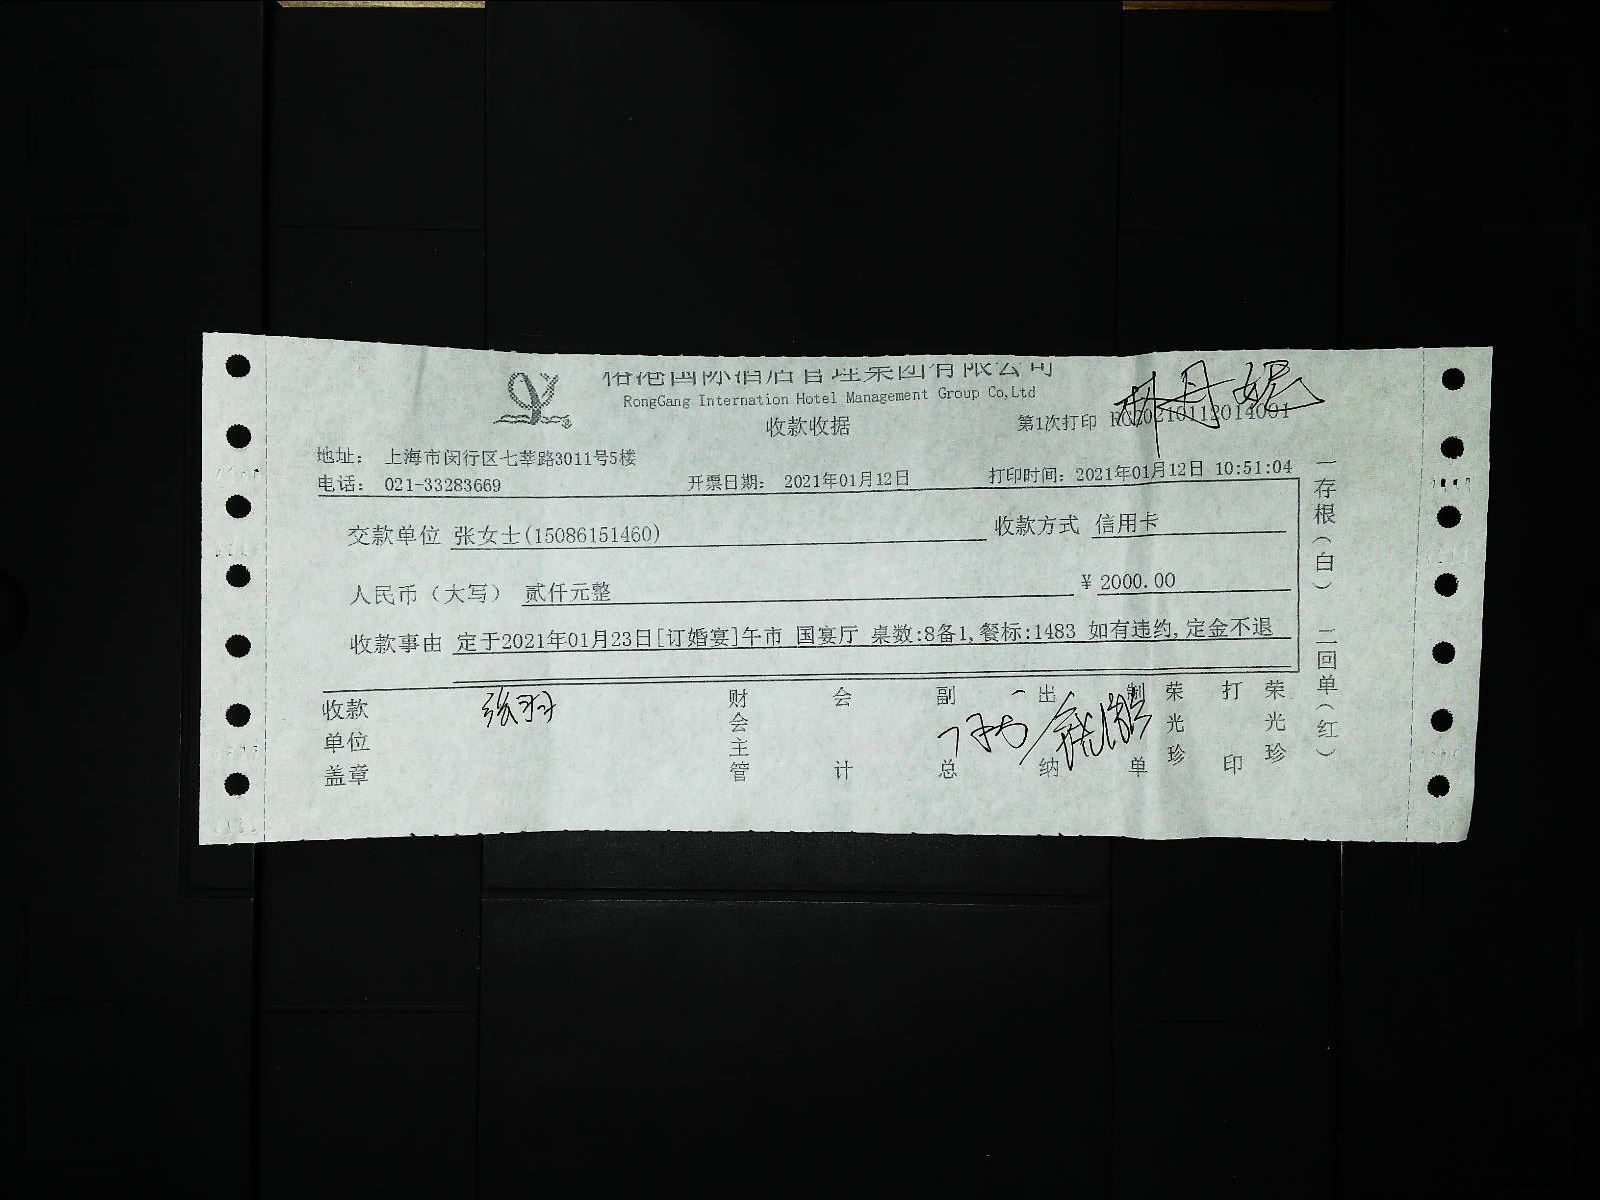 国际酒店管理集团有限公司
RongGang Internation Hotel Management Group Co,Ltd
收款收据
第1次打印 RG20210112014001
地址： 上海市闵行区七莘路3011号5楼
电话： 021-33283669 开票日期： 2021年01月12日 打印时间：2021年01月12日 10:51:04
交款单位 张女士(15086151460) 收款方式 信用卡
人民币（大写） 贰仟元整 ¥ 2000.00
收款事由 定于2021年01月23日[订婚宴]午市 国宴厅 桌数:8备1,餐标:1483 如有违约,定金不退
收款单位盖章 张羽 财会主管 会计 副总 出纳 制单 荣光珍 打印 荣光珍
一存根（白） 二回单（红）